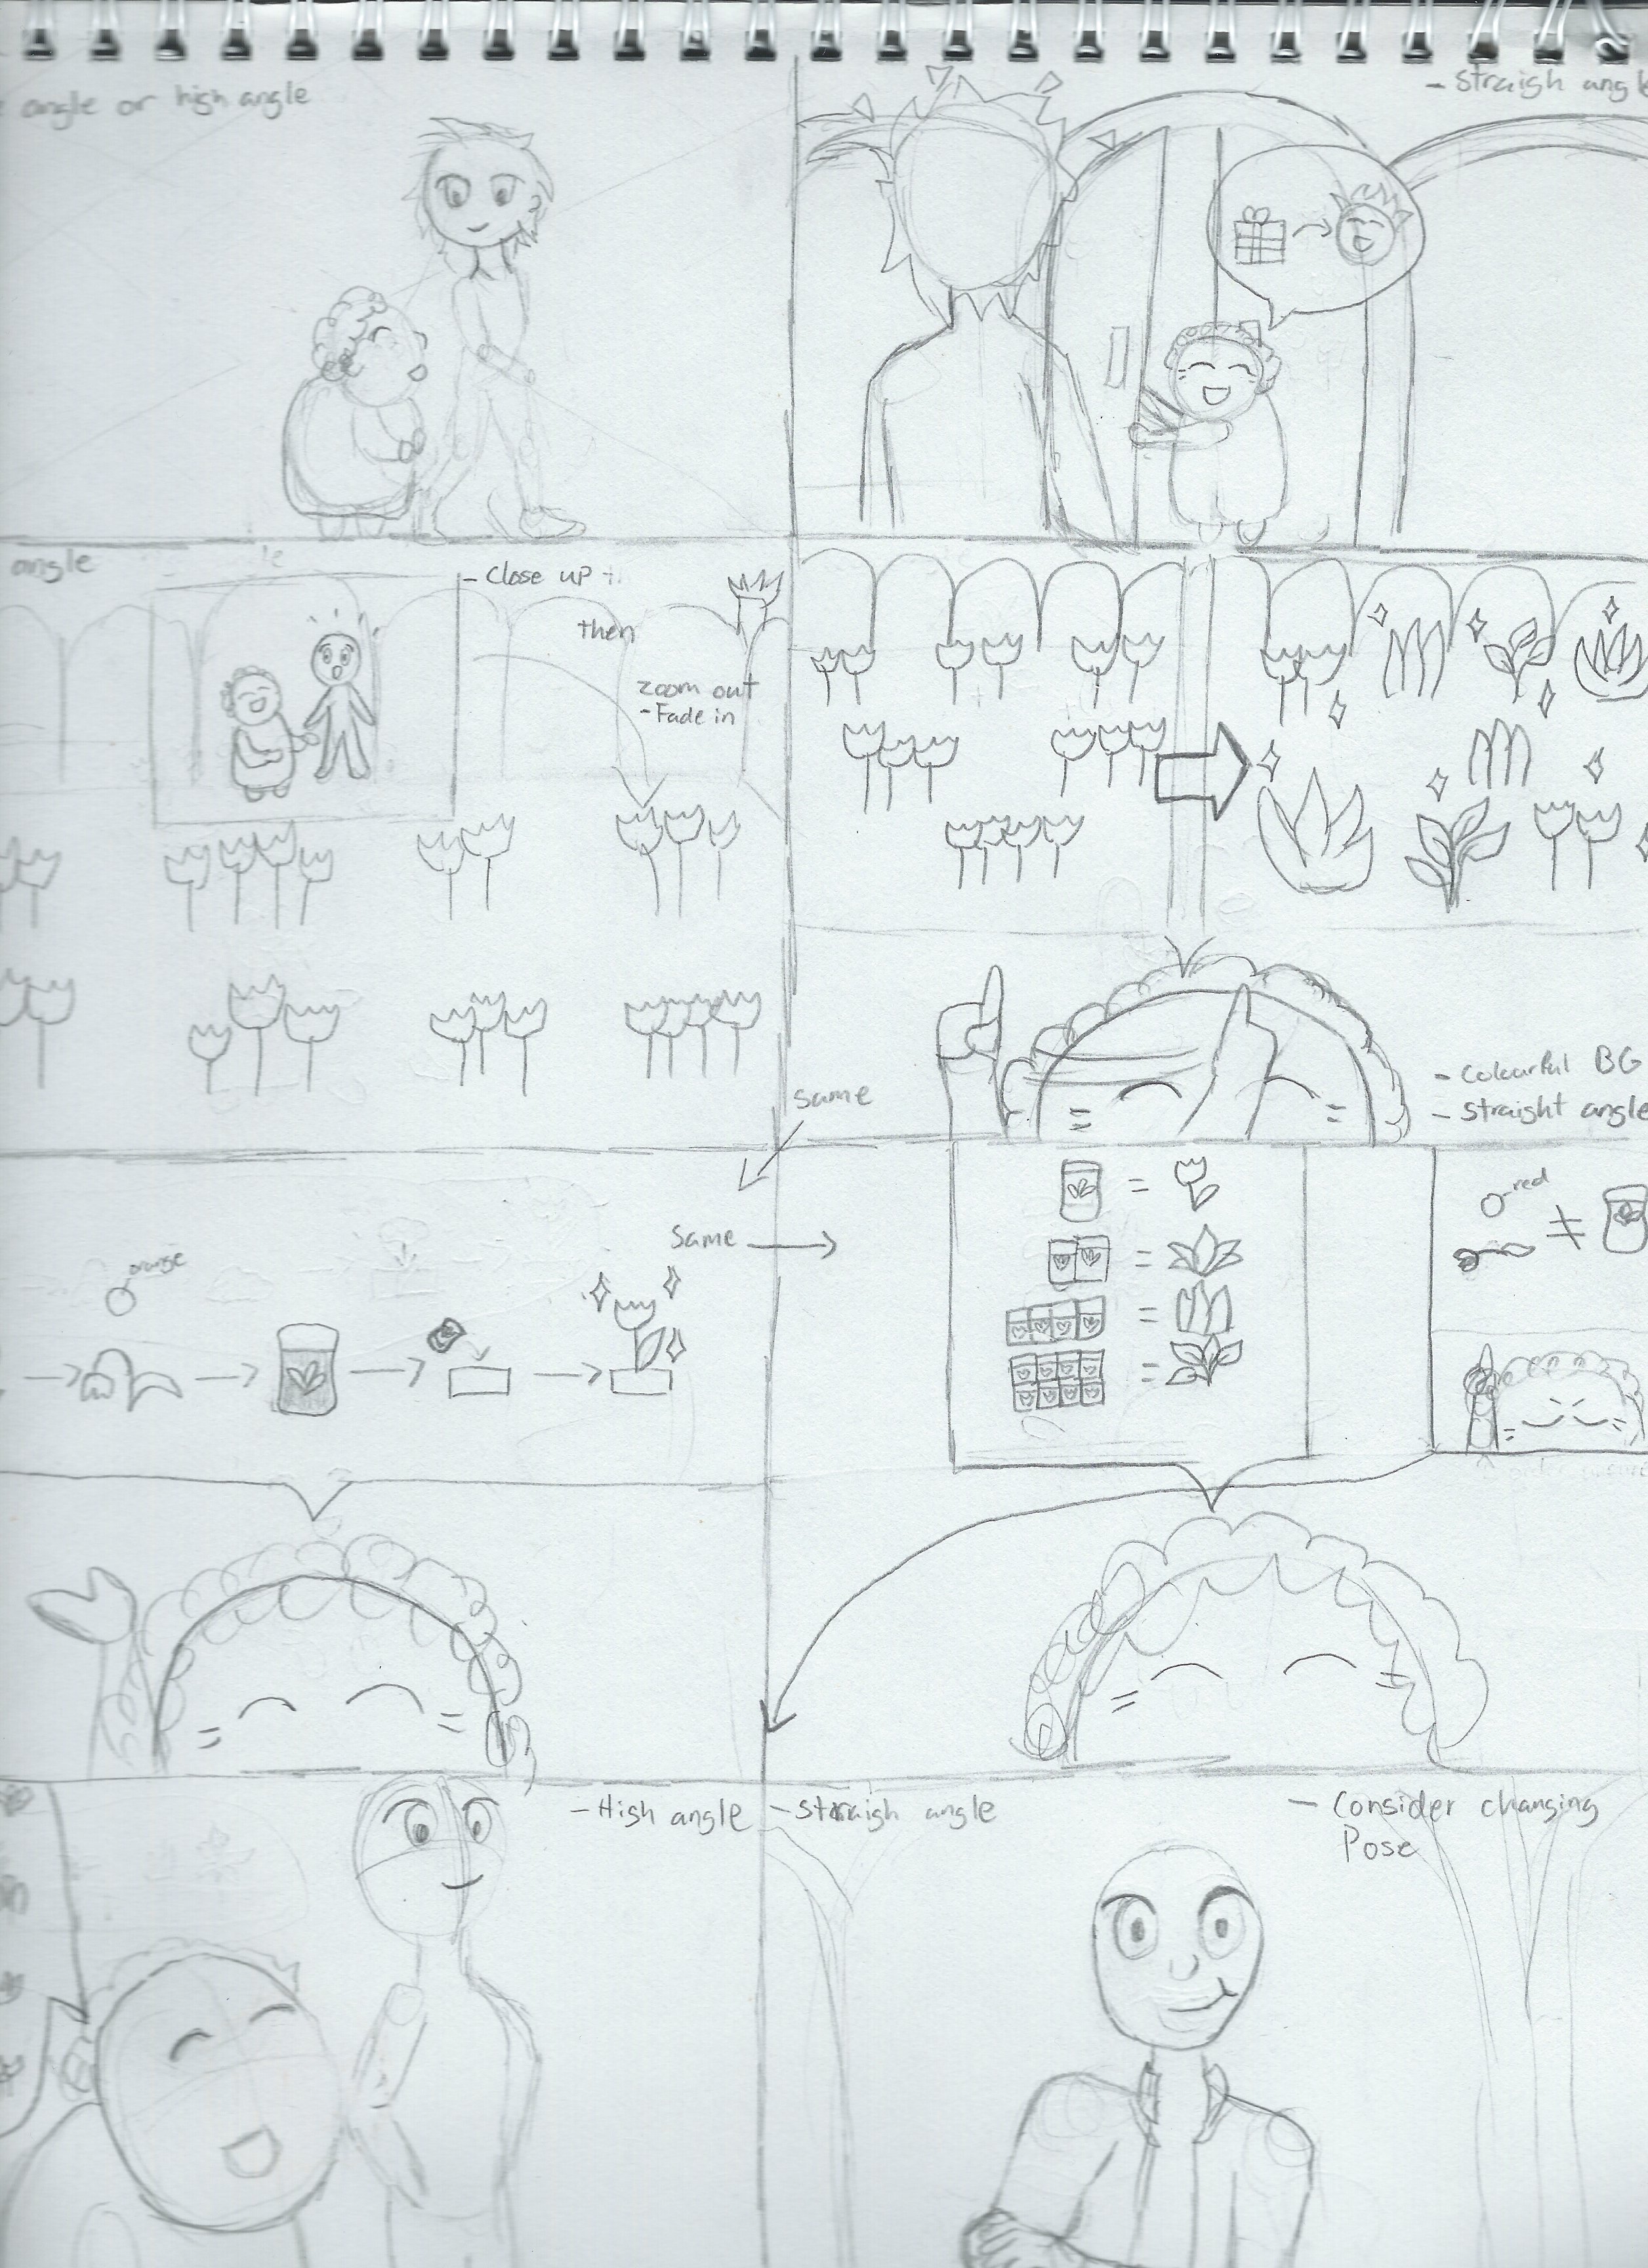 angle or high angle
- Straigh angle
angle
- Close up
then
zoom out
- Fade in
same
- Colourful BG
- Straight angle
orange
same
red
- High angle
- Straigh angle
- Consider changing
Pose